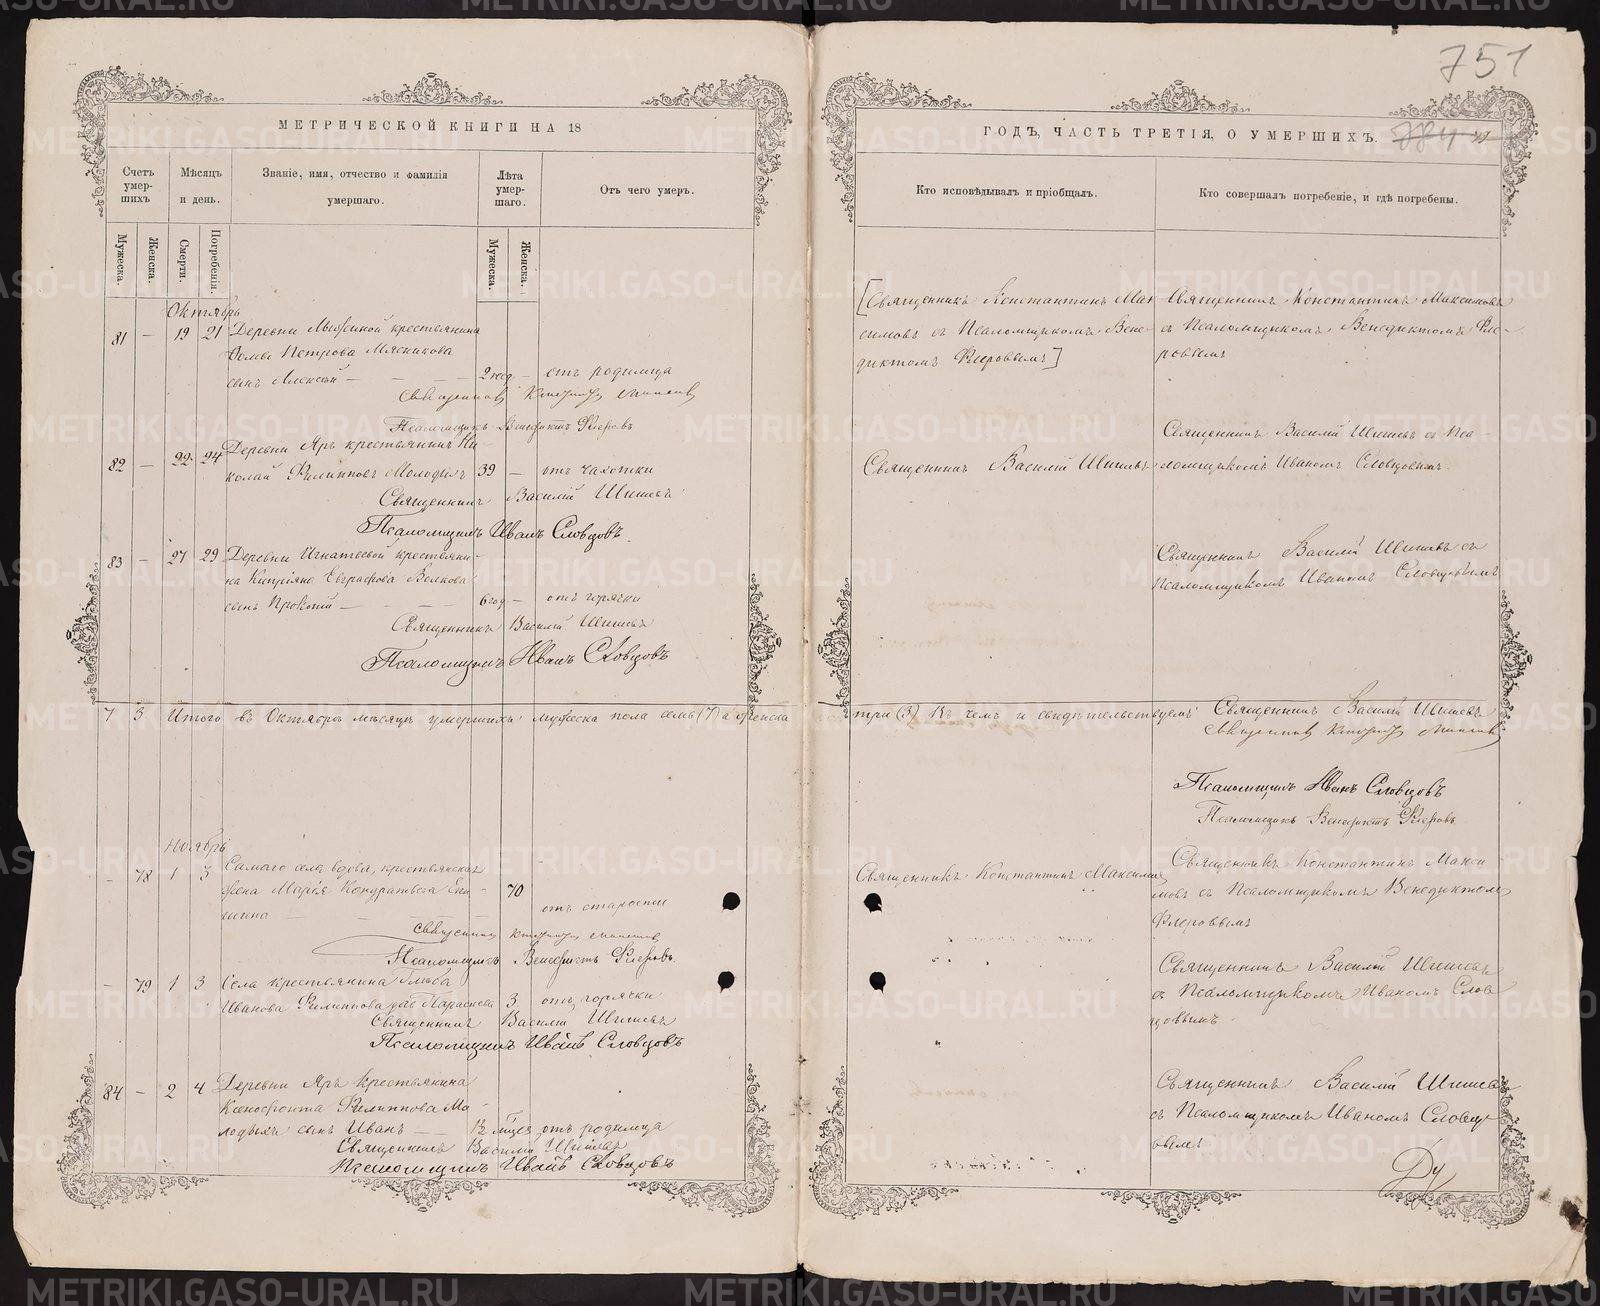 751
МЕТРИЧЕСКОЙ КНИГИ НА 18
ГОДЪ, ЧАСТЬ ТРЕТІЯ, О УМЕРШИХЪ.
Счетъ умер-шихъ
Мѣсяцъ и день.
Званіе, имя, отчество и фамилія умершаго.
Лѣта умер-шаго.
Отъ чего умеръ.
Кто исповѣдывалъ и пріобщалъ.
Кто совершалъ погребеніе, и гдѣ погребены.
Мужеска.
Женска.
Смерти.
Погребенія.
Мужеска.
Женска.
Октябрь
81 — 19 21 Деревни крестьянина
Петрова Мясникова
сынъ Алексѣй — 2 нед. — отъ родимца
Священникъ
Псаломщикъ Венедиктъ Флеровъ
[Священникъ Константинъ Мак
симовъ съ Псаломщикомъ Вене-
диктомъ Флеровымъ]
Священникъ Константинъ Максимовъ
съ Псаломщикомъ Венедиктомъ Фле-
ровымъ
82 — 22 24 Деревни Яръ крестьянинъ Ни-
колай Филипповъ Молодыхъ 39 — отъ чахотки
Священникъ Василій Шишевъ
Псаломщикъ Иванъ Словцовъ.
Священникъ Василій Шишевъ
Священникъ Василій Шишевъ съ Пса-
ломщикомъ Иваномъ Словцовымъ
83 — 27 29 Деревни Игнатьевой крестьяни-
на Кипріяна Евграфова Волкова
сынъ Прокопій — 6 год — отъ горячки
Священникъ Василій Шишевъ
Псаломщикъ Иванъ Словцовъ
Священникъ Василій Шишевъ съ
Псаломщикомъ Иваномъ Словцовымъ
7 3 Итого въ Октябрѣ мѣсяцѣ умершихъ мужеска пола семь (7) а женска
три (3) Въ чемъ и свидѣтельствуемъ Священникъ Василій Шишевъ
Священникъ
Псаломщикъ Иванъ Словцовъ
Псаломщикъ Венедиктъ Флеровъ
Ноябрь
— 78 1 3 Самаго села вдова, крестьянская
жена Марія Кондратьева
70
отъ старости
Священникъ
Псаломщикъ Венедиктъ Флеровъ.
Священникъ Константинъ Максимовъ
Священникъ Константинъ Макси
мовъ съ Псаломщикомъ Венедиктомъ
Флеровымъ
— 79 1 3 Села крестьянина Глѣба
Иванова Филиппова дочь Параскева 3 отъ горячки
Священникъ Василій Шишевъ
Псаломщикъ Иванъ Словцовъ
Священникъ Василій Шишевъ
съ Псаломщикомъ Иваномъ Слов
цовымъ
84 — 2 4 Деревни Яръ крестьянина
Ксенофонта Филиппова Мо-
лодыхъ сынъ Иванъ — отъ родимца
Священникъ Василій Шишевъ
Псаломщикъ Иванъ Словцовъ
Священникъ Василій Шишевъ
съ Псаломщикомъ Иваномъ Словцо
вымъ
METRIKI.GASO-URAL.RU